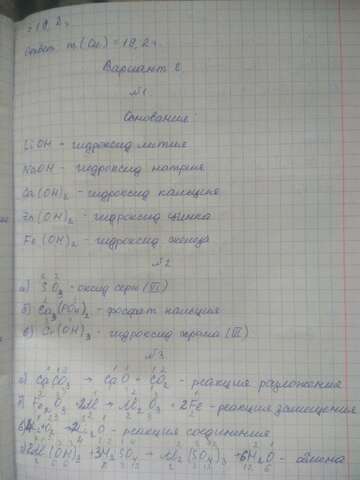 = 19,2 г
Ответ: m(Cu) = 19,2 г
Вариант 2
№1
Основание:
LiOH - гидроксид лития
NaOH - гидроксид натрия
Ca(OH)₂ - гидроксид кальция
Zn(OH)₂ - гидроксид цинка
Fe(OH)₂ - гидроксид железа
№2
а) SO₃ - оксид серы (VI)
б) Ca₃(PO₄)₂ - фосфат кальция
в) Cr(OH)₃ - гидроксид хрома (III)
№3
а) CaCO₃ → CaO + CO₂ - реакция разложения
б) Fe₂O₃ + 2Al → Al₂O₃ + 2Fe - реакция замещения
в) O₂ → O - реакция соединения
г) 2Al(OH)₃ + 3H₂SO₄ → Al₂(SO₄)₃ + 6H₂O - обмена